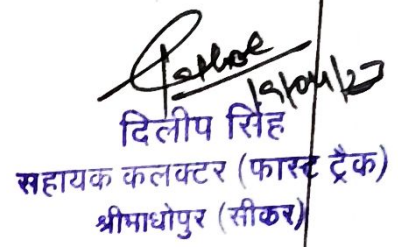 19/04/23
दिलीप सिंह
सहायक कलक्टर (फास्ट ट्रैक)
श्रीमाधोपुर (सीकर)